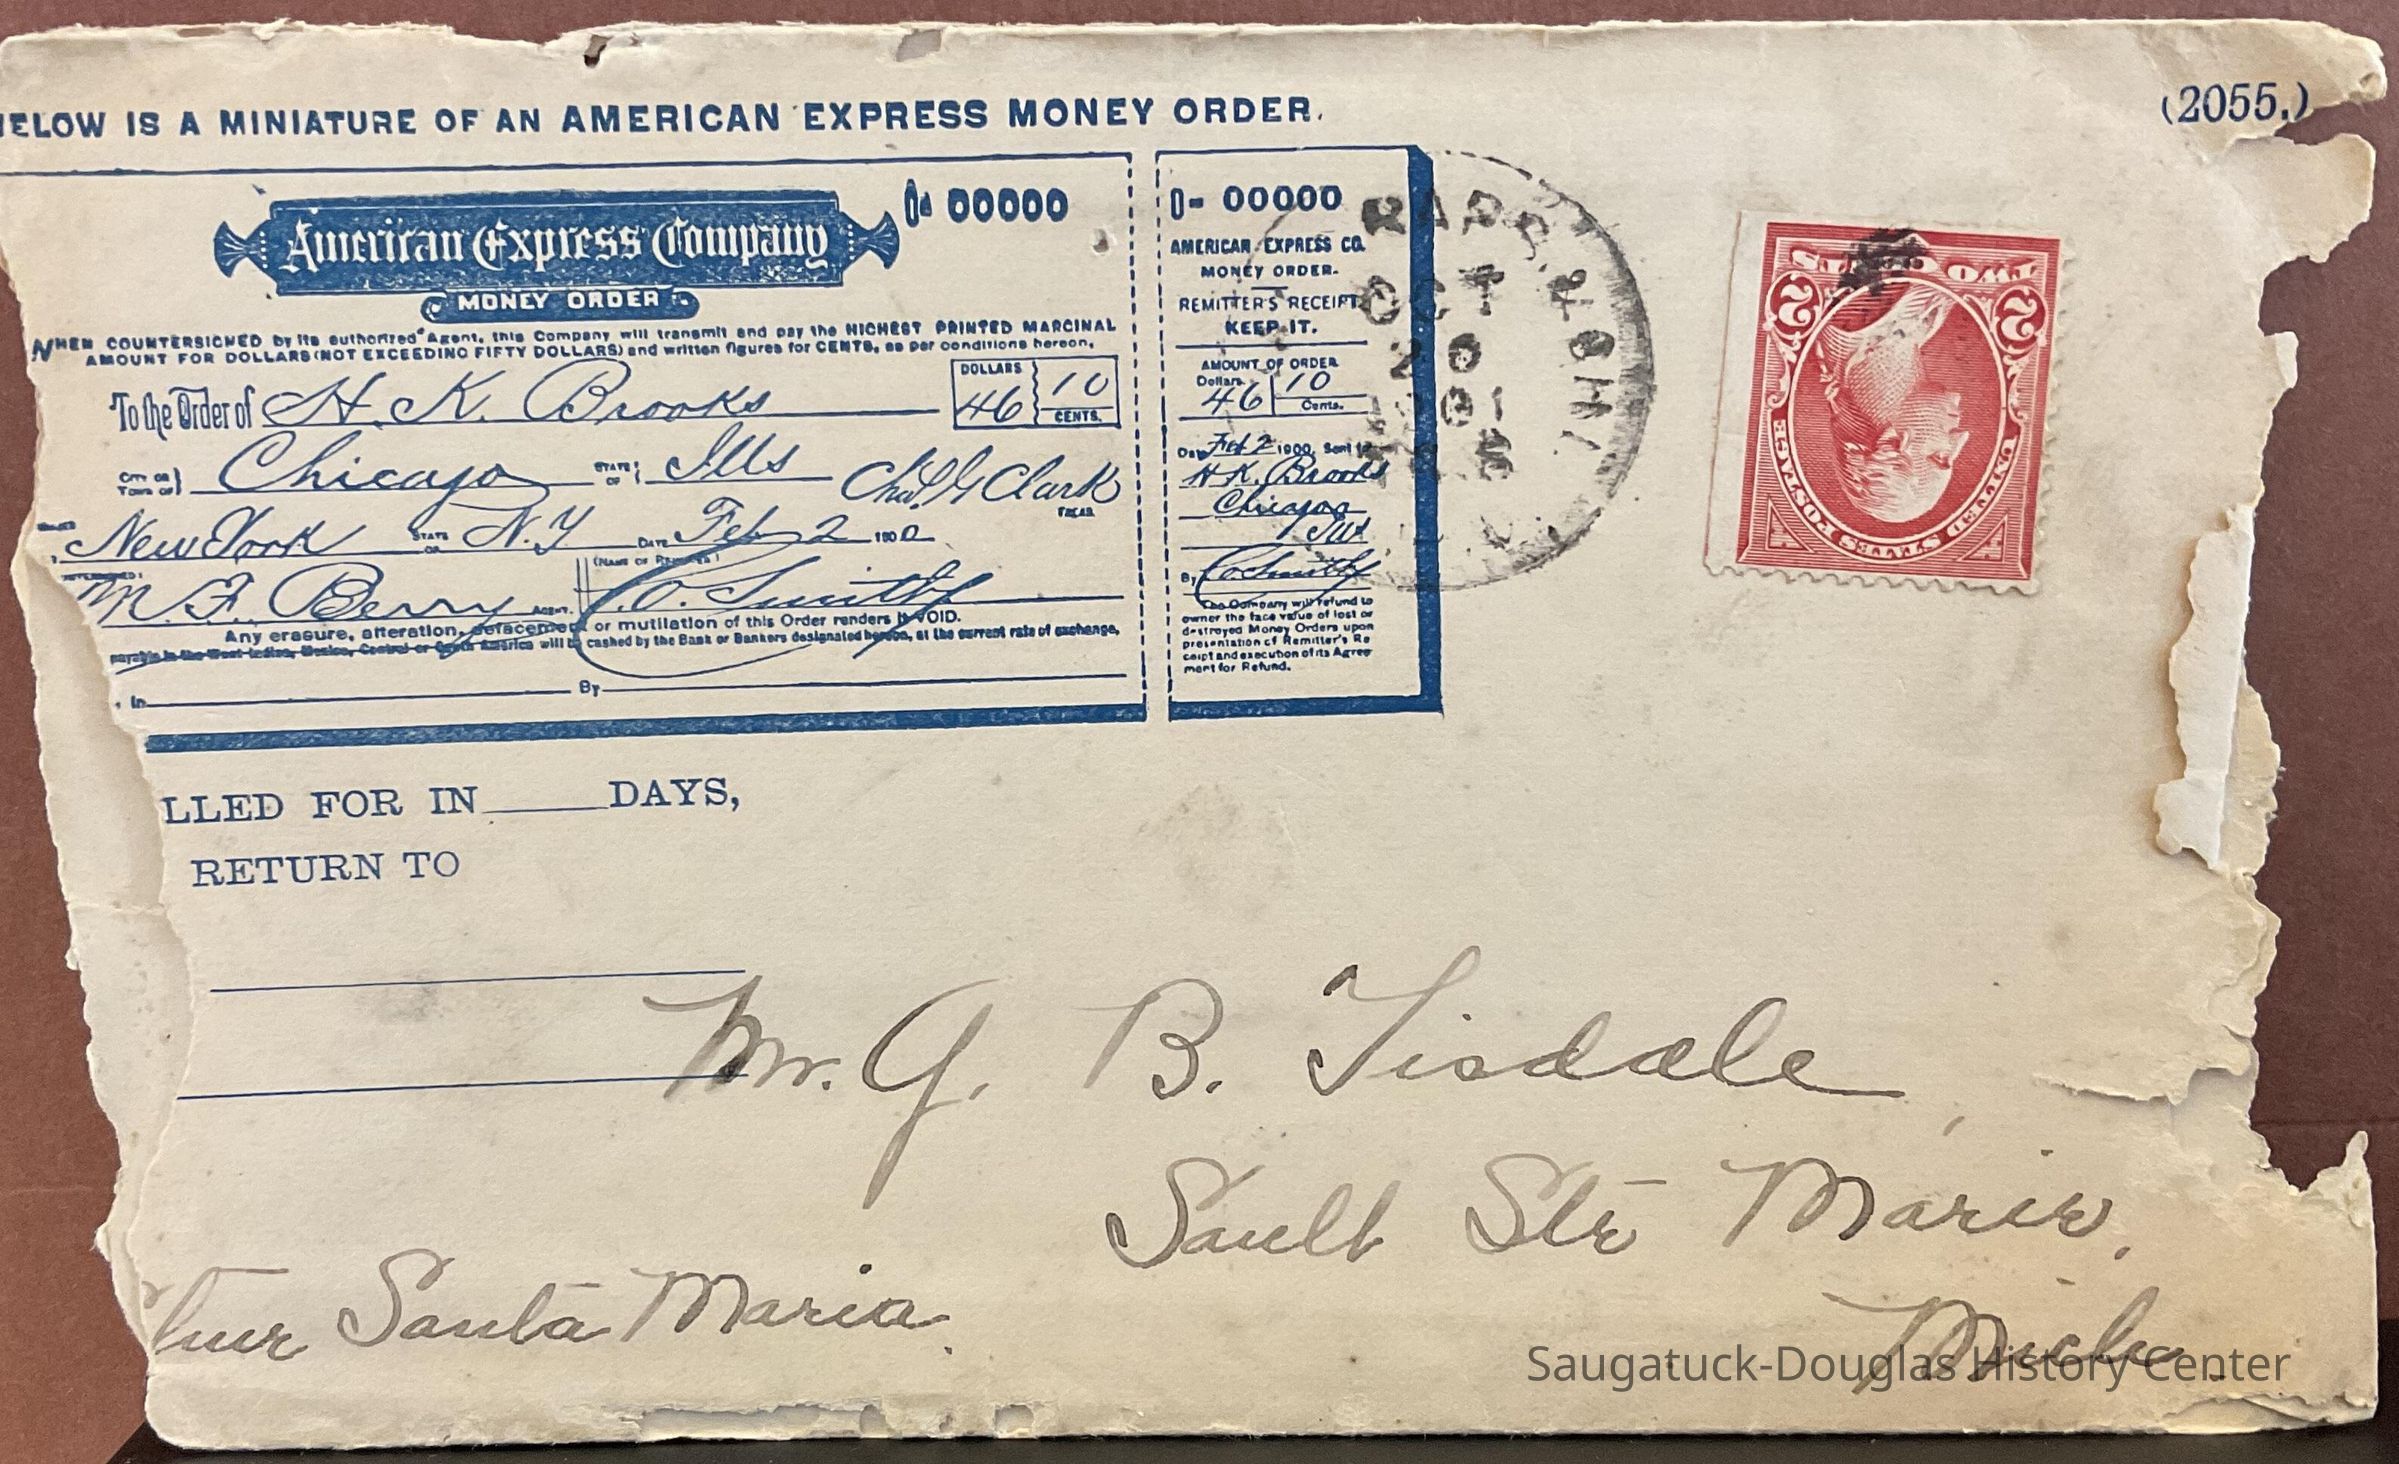 ELOW IS A MINIATURE OF AN AMERICAN EXPRESS MONEY ORDER.
(2055.)
American Express Company
00000
MONEY ORDER
WHEN COUNTERSIGNED by its authorized Agent, this Company will transmit and pay the HIGHEST PRINTED MARGINAL
AMOUNT FOR DOLLARS (NOT EXCEEDING FIFTY DOLLARS) and written figures for CENTS, as per conditions hereon.
To the Order of H. K. Brooks
DOLLARS 46 10 CENTS.
CITY OR TOWN OF Chicago STATE OF Ills Chas G Clark
New York STATE OF N.Y DATE Feb 2 1900
M. F. Berry AGENT. C. O. Smith
Any erasure, alteration, defacement or mutilation of this Order renders it VOID.
payable in the West Indies, Mexico, Central or South America will be cashed by the Bank or Bankers designated hereon, at the current rate of exchange,
In By
00000
AMERICAN EXPRESS CO.
MONEY ORDER.
REMITTER'S RECEIPT
KEEP IT.
AMOUNT OF ORDER
Dollars 46 10 Cents.
Feb 2 1900, Sent to
H. K. Brooks
Chicago
Ills
By C. O. Smith
The Company will refund to
owner the face value of lost or
destroyed Money Orders upon
presentation of Remitter's Re
ceipt and execution of its Agree
ment for Refund.
OCT
TWO CENTS
2 2
UNITED STATES POSTAGE
LLED FOR IN DAYS,
RETURN TO
Mr. G. B. Tisdale
Sault Ste Marie.
Mich
Santa Maria.
Saugatuck-Douglas History Center